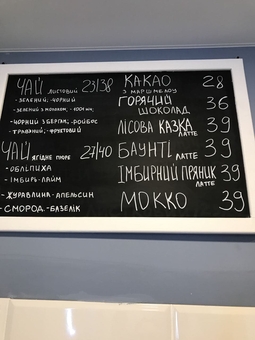 ЧАЙ листовий 23/38
- зелений, чорний
- зелений з молоком,
- чорний з бергам., ройбос
- травяний, фруктовий
ЧАЙ ягідне пюре 27/40
- обліпиха
- імбирь-лайм
- журавлина-апельсин
- смород.-базелік
КАКАО 28
з маршмелоу
ГОРЯЧИЙ 36
ШОКОЛАД
ЛІСОВА КАЗКА 39
ЛАТТЕ
БАУНТІ 39
ЛАТТЕ
ІМБИРНИЙ ПРЯНИК 39
ЛАТТЕ
МОККО 39